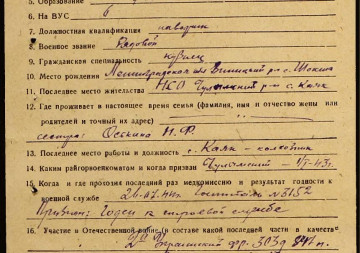 5. Образование
6. На ВУС 6
7. Должностная квалификация наводчик
8. Военное звание Рядовой
9. Гражданская специальность кузнец
10. Место рождения Ленинградская обл Винницкий р-н с.
11. Последнее место жительства НСО Чулымский р-н с. Каяк
12. Где проживает в настоящее время семья (фамилия, имя и отчество жены или
родителей и точный их адрес)
сестра:
13. Последнее место работы и должность с. Каяк - колхозник
14. Каким райгорвоенкоматом и когда призван Чулымский - VI-43г.
15. Когда и где проходил последний раз медкомиссию и результат годности к
военной службе 26.07.44г №3152
Признан: годен к строевой службе
16. Участие в Отечественной войне (в составе какой части в качестве
Украинский фр. 303д 844 п.